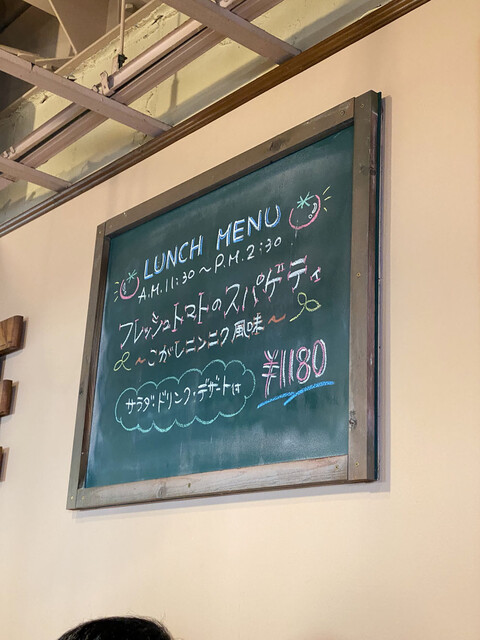 LUNCH MENU
A.M.11:30～P.M.2:30
フレッシュトマトのスパゲティ
～こがしニンニク風味～
サラダ・ドリンク・デザートは
¥1180